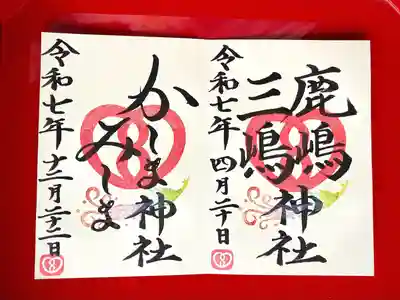 鹿嶋
三嶋
神社
令和七年 四月二十日
かしま
みしま
神社
令和七年 十二月二十二日